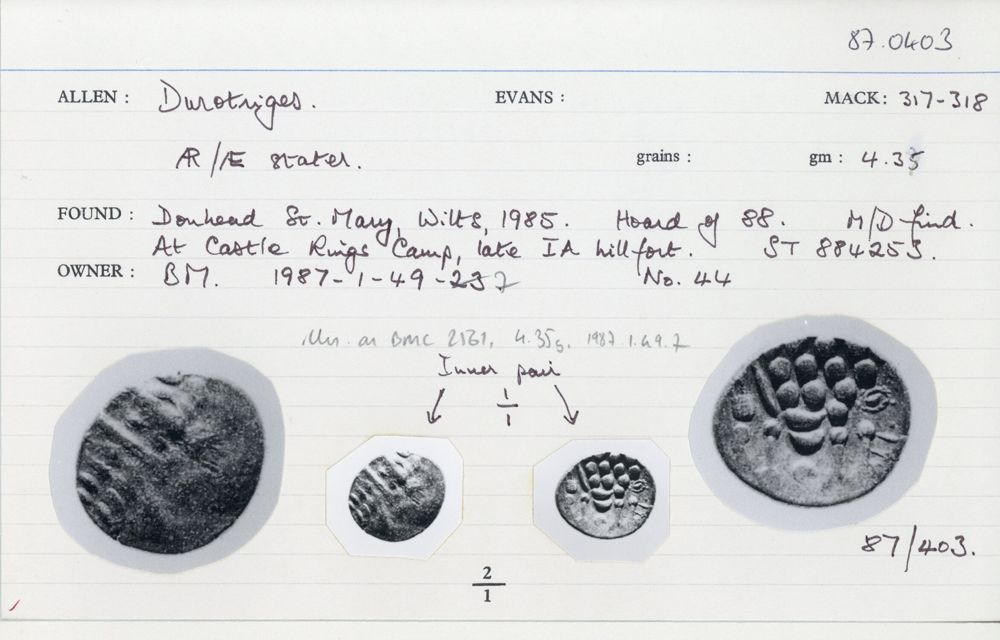 87.0403
ALLEN : Durotriges. EVANS : MACK: 317-318
AR/Æ stater. grains : gm : 4.35
FOUND : Donhead St. Mary, Wilts, 1985. Hoard of 88. M/D find.
At Castle Rings Camp, late IA hillfort. ST 884253.
OWNER : BM. 1987-1-49-237 No. 44
illus. as BMC 2561, 4.35g, 1987.1.49.7
Inner pair
1
1
87/403.
2
1